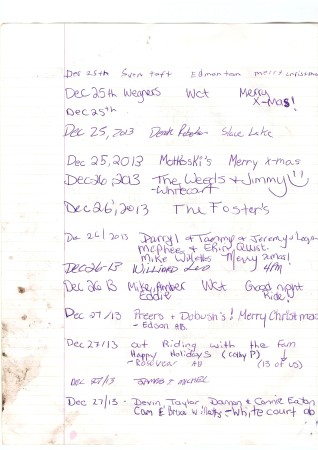 Dec 25th Sven Taft Edmonton merry christmas
Dec 25th Wegners Wct Merry
X-mas!
Dec 25th
Dec 25, 2013 Derek Slave Lake
Dec 25, 2013 Merry x-mas
Dec 26, 2013 The Weeds & Jimmy
- Whitecourt
Dec 26, 2013 The Foster's
Dec 26/2013 Darryl & Tammy & Jeremy & Logan
McPhee & Erin
Mike Willetts Merry Xmas!
Dec 26-13 4PM
Dec 26 13 Mike, Amber Wct Good night
Eddie Ride!
Dec 27/13 Preers + Dobush's! Merry Christmas
- Edson AB.
Dec 27/13 out Riding with the Fam
Happy Holidays (Cathy P) ↓
- AB (13 of us)
Dec 27/13
Dec 27/13 - Devin, Taylor, Damon & Carrie Eaton
Cam & Bruce Willetts - White court ab